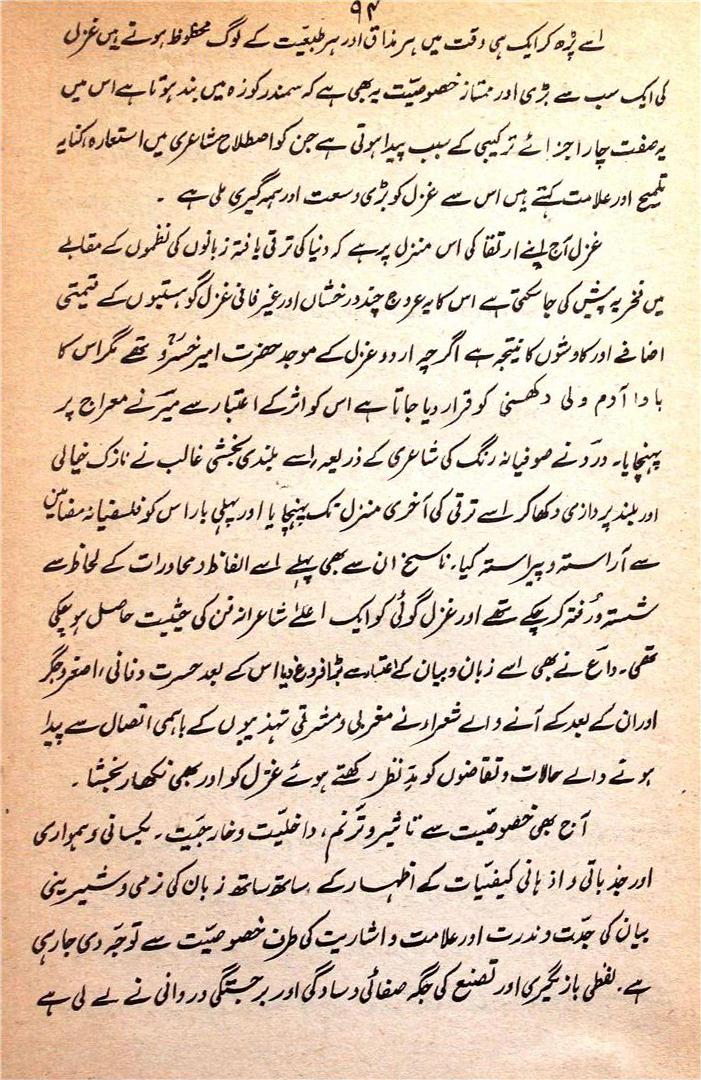 ۹۴
اسے پڑھ کر ایک ہی وقت میں ہر مذاق اور ہر طبعیت کے لوگ محظوظ ہوتے ہیں غزل
کی ایک سب سے بڑی اور ممتاز خصوصیّت یہ بھی ہے کہ سمندر کوزہ میں بند ہوتا ہے اس میں
یہ صفت چار اجزائے ترکیبی کے سبب پیدا ہوتی ہے جن کو اصطلاح شاعری میں استعارہ، کنایہ
تلمیح اور علامت کہتے ہیں اس سے غزل کو بڑی وسعت اور ہمہ گیری ملی ہے ۔
غزل آج اپنے ارتقا کی اس منزل پر ہے کہ دنیا کی ترقی یافتہ زبانوں کی نظموں کے مقابلے
میں فخریہ پیش کی جاسکتی ہے اس کا یہ عروج چند درخشاں اور غیر فانی غزل گو ہستیوں کے قیمتی
اضافے اور کاوشوں کا نتیجہ ہے اگرچہ اردو غزل کے موجد حضرت امیر خسروؒ تھے مگر اس کا
باوا آدم ولی دکھنی کو قرار دیا جاتا ہے اس کو اثر کے اعتبار سے میرؔ نے معراج پر
پہنچایا۔ دردؔ نے صوفیانہ رنگ کی شاعری کے ذریعہ اسے بلندی بخشی غالب نے نازک خیالی
اور بلند پردازی دکھا کر اسے ترقی کی آخری منزل تک پہنچایا اور پہلی بار اس کو فلسفیانہ مضامین
سے آراستہ و پیراستہ کیا۔ ناسخ ان سے بھی پہلے اسے الفاظ و محاورات کے لحاظ سے
شستہ و رُفتہ کر چکے تھے اور غزل گوئی کو ایک اعلےٰ شاعرانہ فن کی حیثیت حاصل ہو چکی
تھی۔ داغؔ نے بھی اسے زبان و بیان کے اعتبار سے بڑا فروغ دیا اس کے بعد حسرت و فانی، اصغر و جگر
اور ان کے بعد کے آنے والے شعراء نے مغربی و مشرقی تہذیبوں کے باہمی اتصال سے پیدا
ہونے والے حالات و تقاضوں کو مدِ نظر رکھتے ہوئے غزل کو اور بھی نکھار بخشا ۔
آج بھی خصوصیّت سے تاثیر و ترنّم، داخلیّت و خارجیّت ۔ یکسانی و ہمواری
اور جذباتی و اذہانی کیفیّات کے اظہار کے ساتھ ساتھ زبان کی نرمی و شیرینی
بیان کی جدّت و ندرت اور علامت و اشاریت کی طرف خصوصیّت سے توجہ دی جارہی
ہے۔ لفظی بازیگری اور تصنع کی جگہ صفائی و سادگی اور برجستگی و روانی نے لے لی ہے